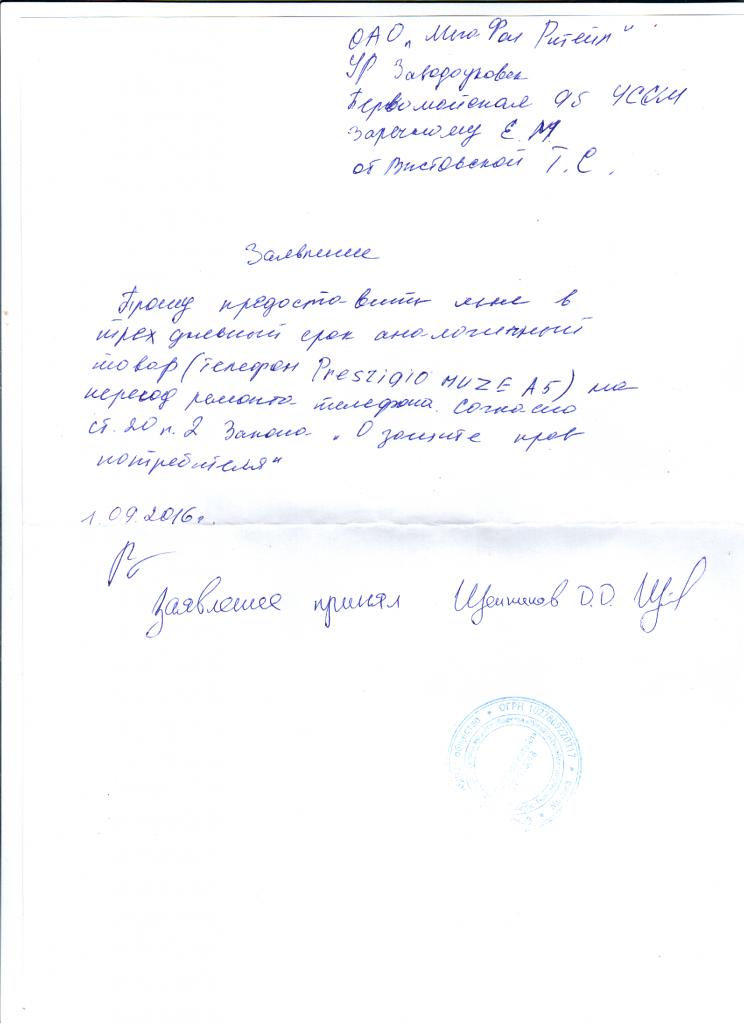 ОАО „Мега Фон Ритейл"
УР Заводоуковск
Первомайская 95 ЧССМ
Заречному Е. М.
от Вистовской Т. С.
Заявление
Прошу предоставить мне в
трех дневный срок аналогичный
товар (телефон Prestigio MUZE A5) на
период ремонта телефона. Согласно
ст. 20 п. 2 Закона „О защите прав
потребителя"
1.09.2016г.
Заявление принял Щенников О.О.
общество * ОГРН 1027809220317 *